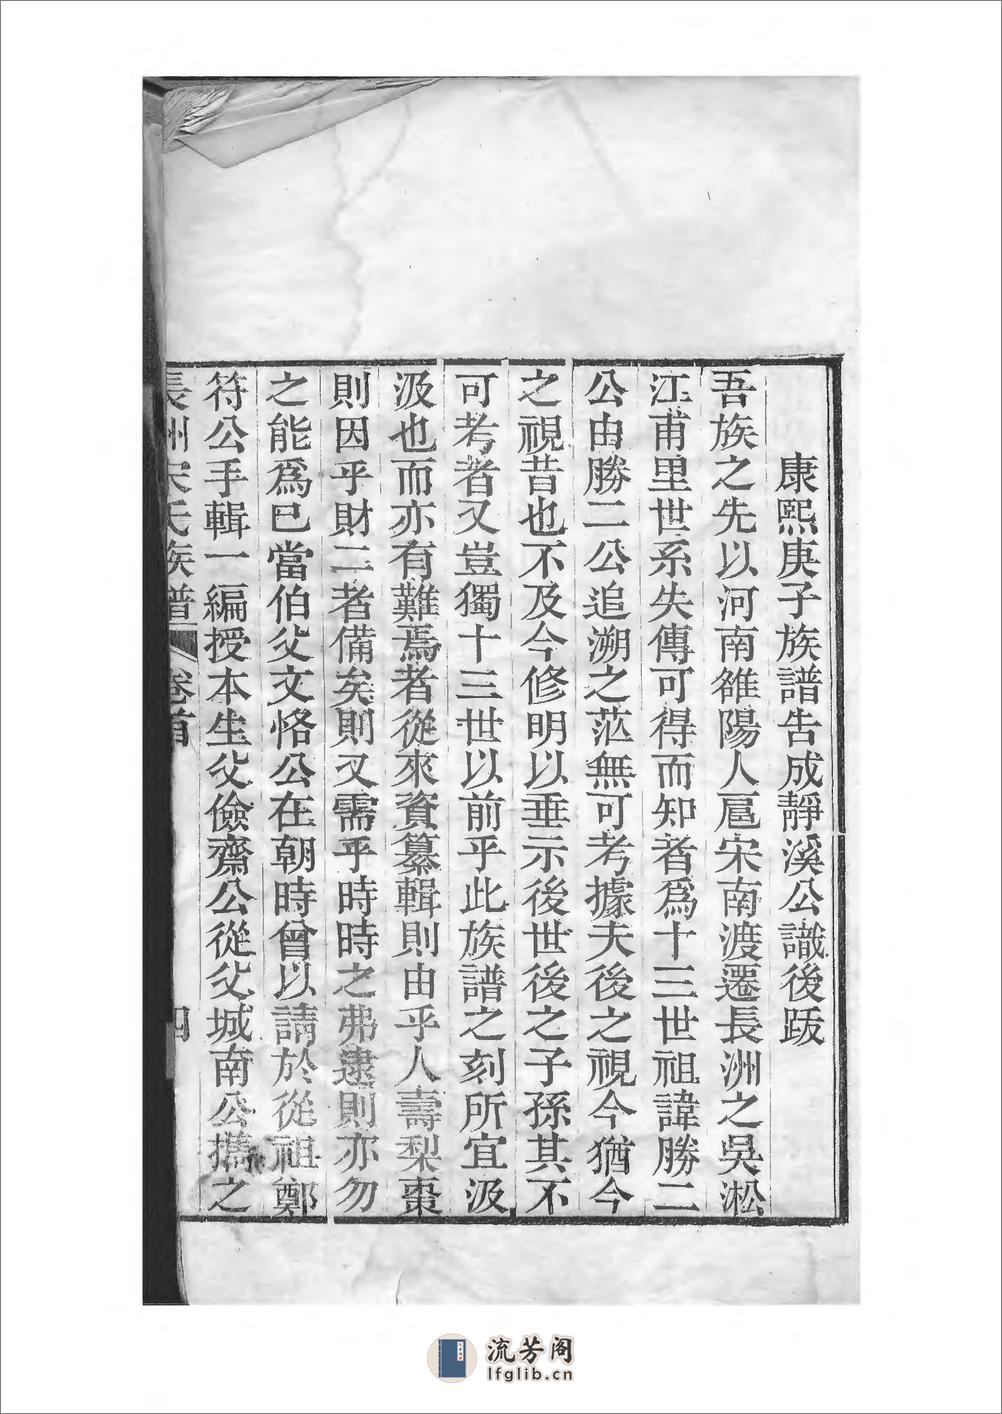 康熙庚子族譜告成靜溪公識後跋
吾族之先以河南雒陽人扈宋南渡遷長洲之吳淞
江甫里世系失傳可得而知者爲十三世祖諱勝二
公由勝二公追溯之茫無可考據夫後之視今猶今
之視昔也不及今修明以垂示後世後之子孫其不
可考者又豈獨十三世以前乎此族譜之刻所宜汲
汲也而亦有難焉者從來資纂輯則由乎人壽梨棗
則因乎財二者備矣則又需乎時時之弗逮則亦勿
之能爲已當伯父文恪公在朝時曾以請於從祖鄭
符公手輯一編授本生父儉齋公從父城南公攜之
長洲宋氏族譜 卷首 四
流芳阁
lfglib.cn